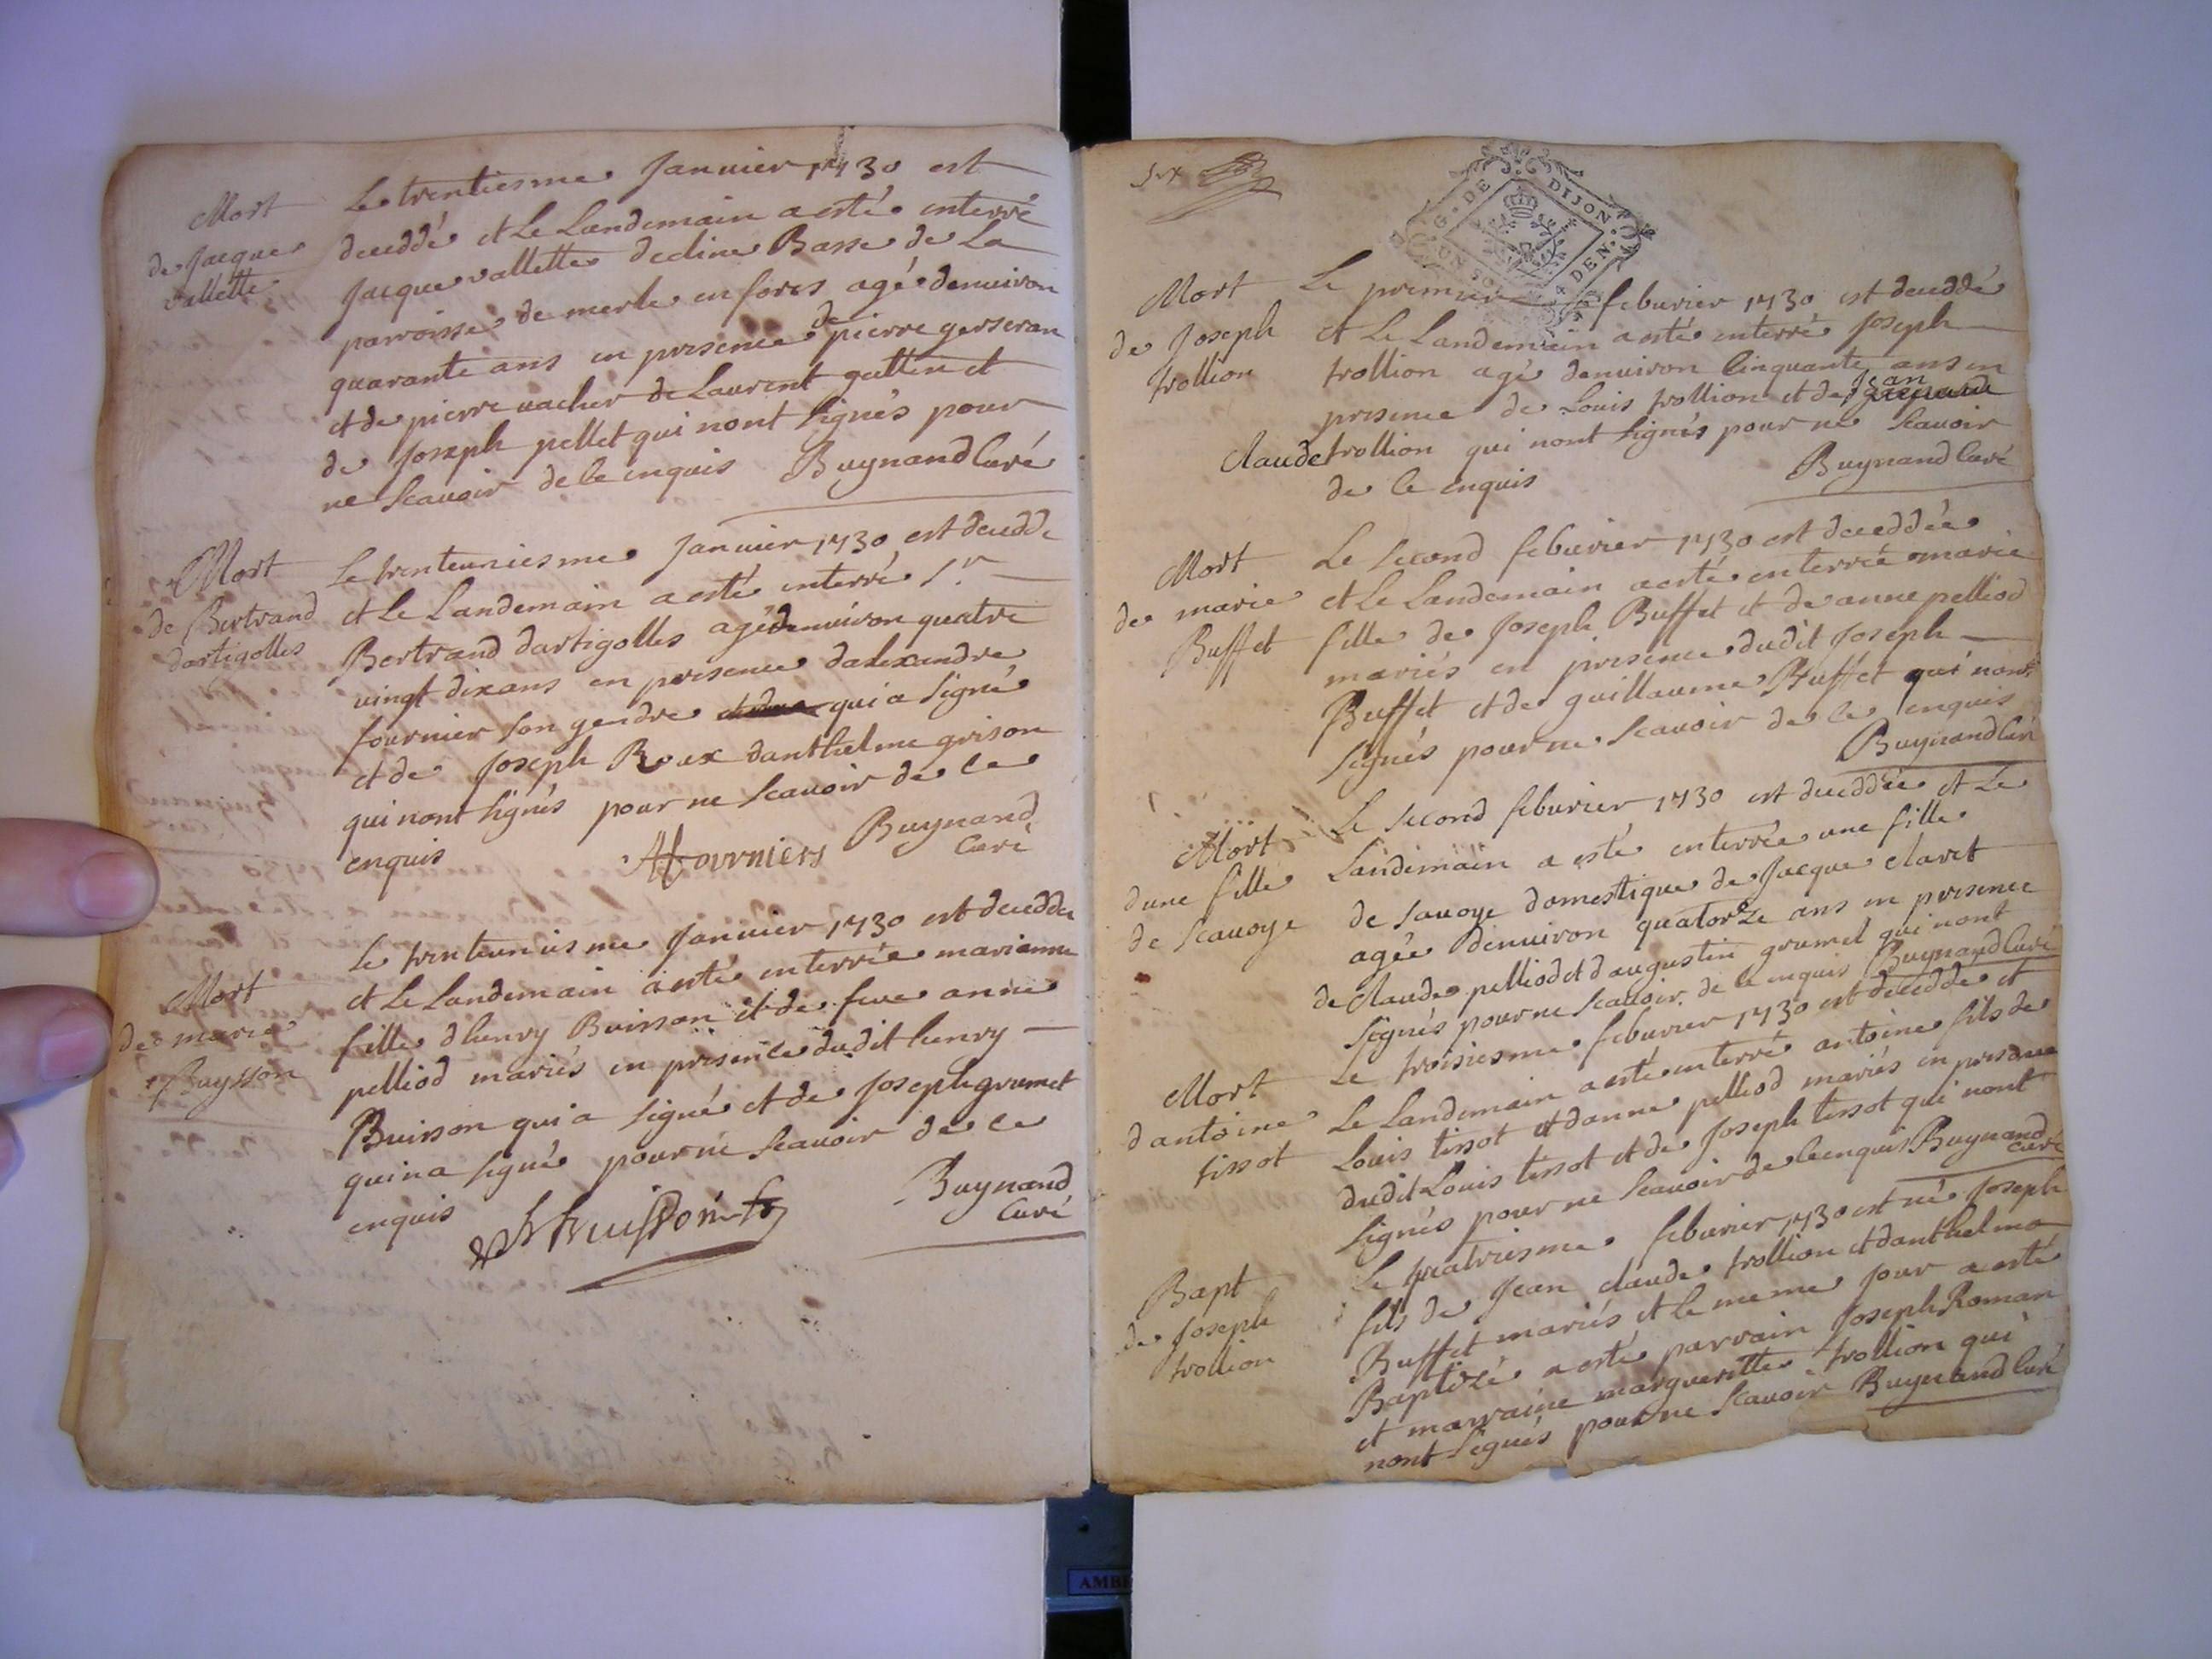 Mort
de Jacque
vallette
Le trentiesme Janvier 1730 est
deceddé et Le Landemain a esté enterré
Jacque vallette decline Basse de La
parroisse de merle en fores agé denuiron
quarante ans en presence de pierre gerseran
et de pierre vacher de Laurent guttin et
de Joseph pellet qui nont signés pour
ne scauoir de ce enquis Buynand Curé
Mort
de Bertrand
dartigolles
Le trenteuniesme Januier 1730 est deceddé
et Le Landemain a esté enterré Sr
Bertrand dartigolles agé denuiron quatre
vingt dix ans en presence dalexandre
fournier son gendre qui a signé
et de Joseph Roux danthelme grison
qui nont signés pour ne scauoir de ce
enquis AFourniers Buynand
Curé
Mort
de marie
Buysson
Le trenteuniesme Januier 1730 est deceddee
et Le Landemain a esté enterrée marianne
fille dhenry Buisson et de feue anne
pelliod mariés en presence dudit henry
Buisson qui a signé et de Joseph grumet
qui na signé pour ne scauoir de ce
enquis Buynand
Curé
six
G. DE DIJON
UN SOL DEN.
Mort
de Joseph
trollion
Le premier feburier 1730 est deceddé
et Le Landemain a esté enterré Joseph
trollion agé denuiron Cinquante ans en
presence de Louis trollion et de Jean
Claude trollion qui nont signés pour ne scauoir
de ce enquis Buynand Curé
Mort
de marie
Buffet
Le second feburier 1730 est deceddée
et Le Landemain a esté enterrée marie
fille de Joseph Buffet et de anne pelliod
mariés en presence dudit Joseph
Buffet et de guillaume Buffet qui nont
signés pour ne scauoir de ce enquis
Buynand Curé
Mort
dune fille
de Scauoye
Le second feburier 1730 est deceddée et Le
Landemain a esté enterrée une fille
de Sauoye domestique de Jacque claret
agée denuiron quatorze ans en presence
de claude pelliod et daugustin grumel qui nont
signés pour ne scauoir de ce enquis Buynand Curé
Mort
dantoine
tissot
Le troisiesme feburier 1730 est deceddé et
Le Landemain a esté enterré antoine fils de
Louis tissot et danne pelliod mariés en presence
dudit Louis tissot et de Joseph tissot qui nont
signés pour ne scauoir de ce enquis Buynand
Curé
Bapt
de Joseph
trollion
Le quatriesme feburier 1730 est né Joseph
fils de Jean claude trollion et danthelma
Buffet mariés et le meme jour a esté
Baptizé a esté parrain Joseph Roman
et marraine margueritte trollion qui
nont signés pour ne scauoir Buynand Curé
AMB